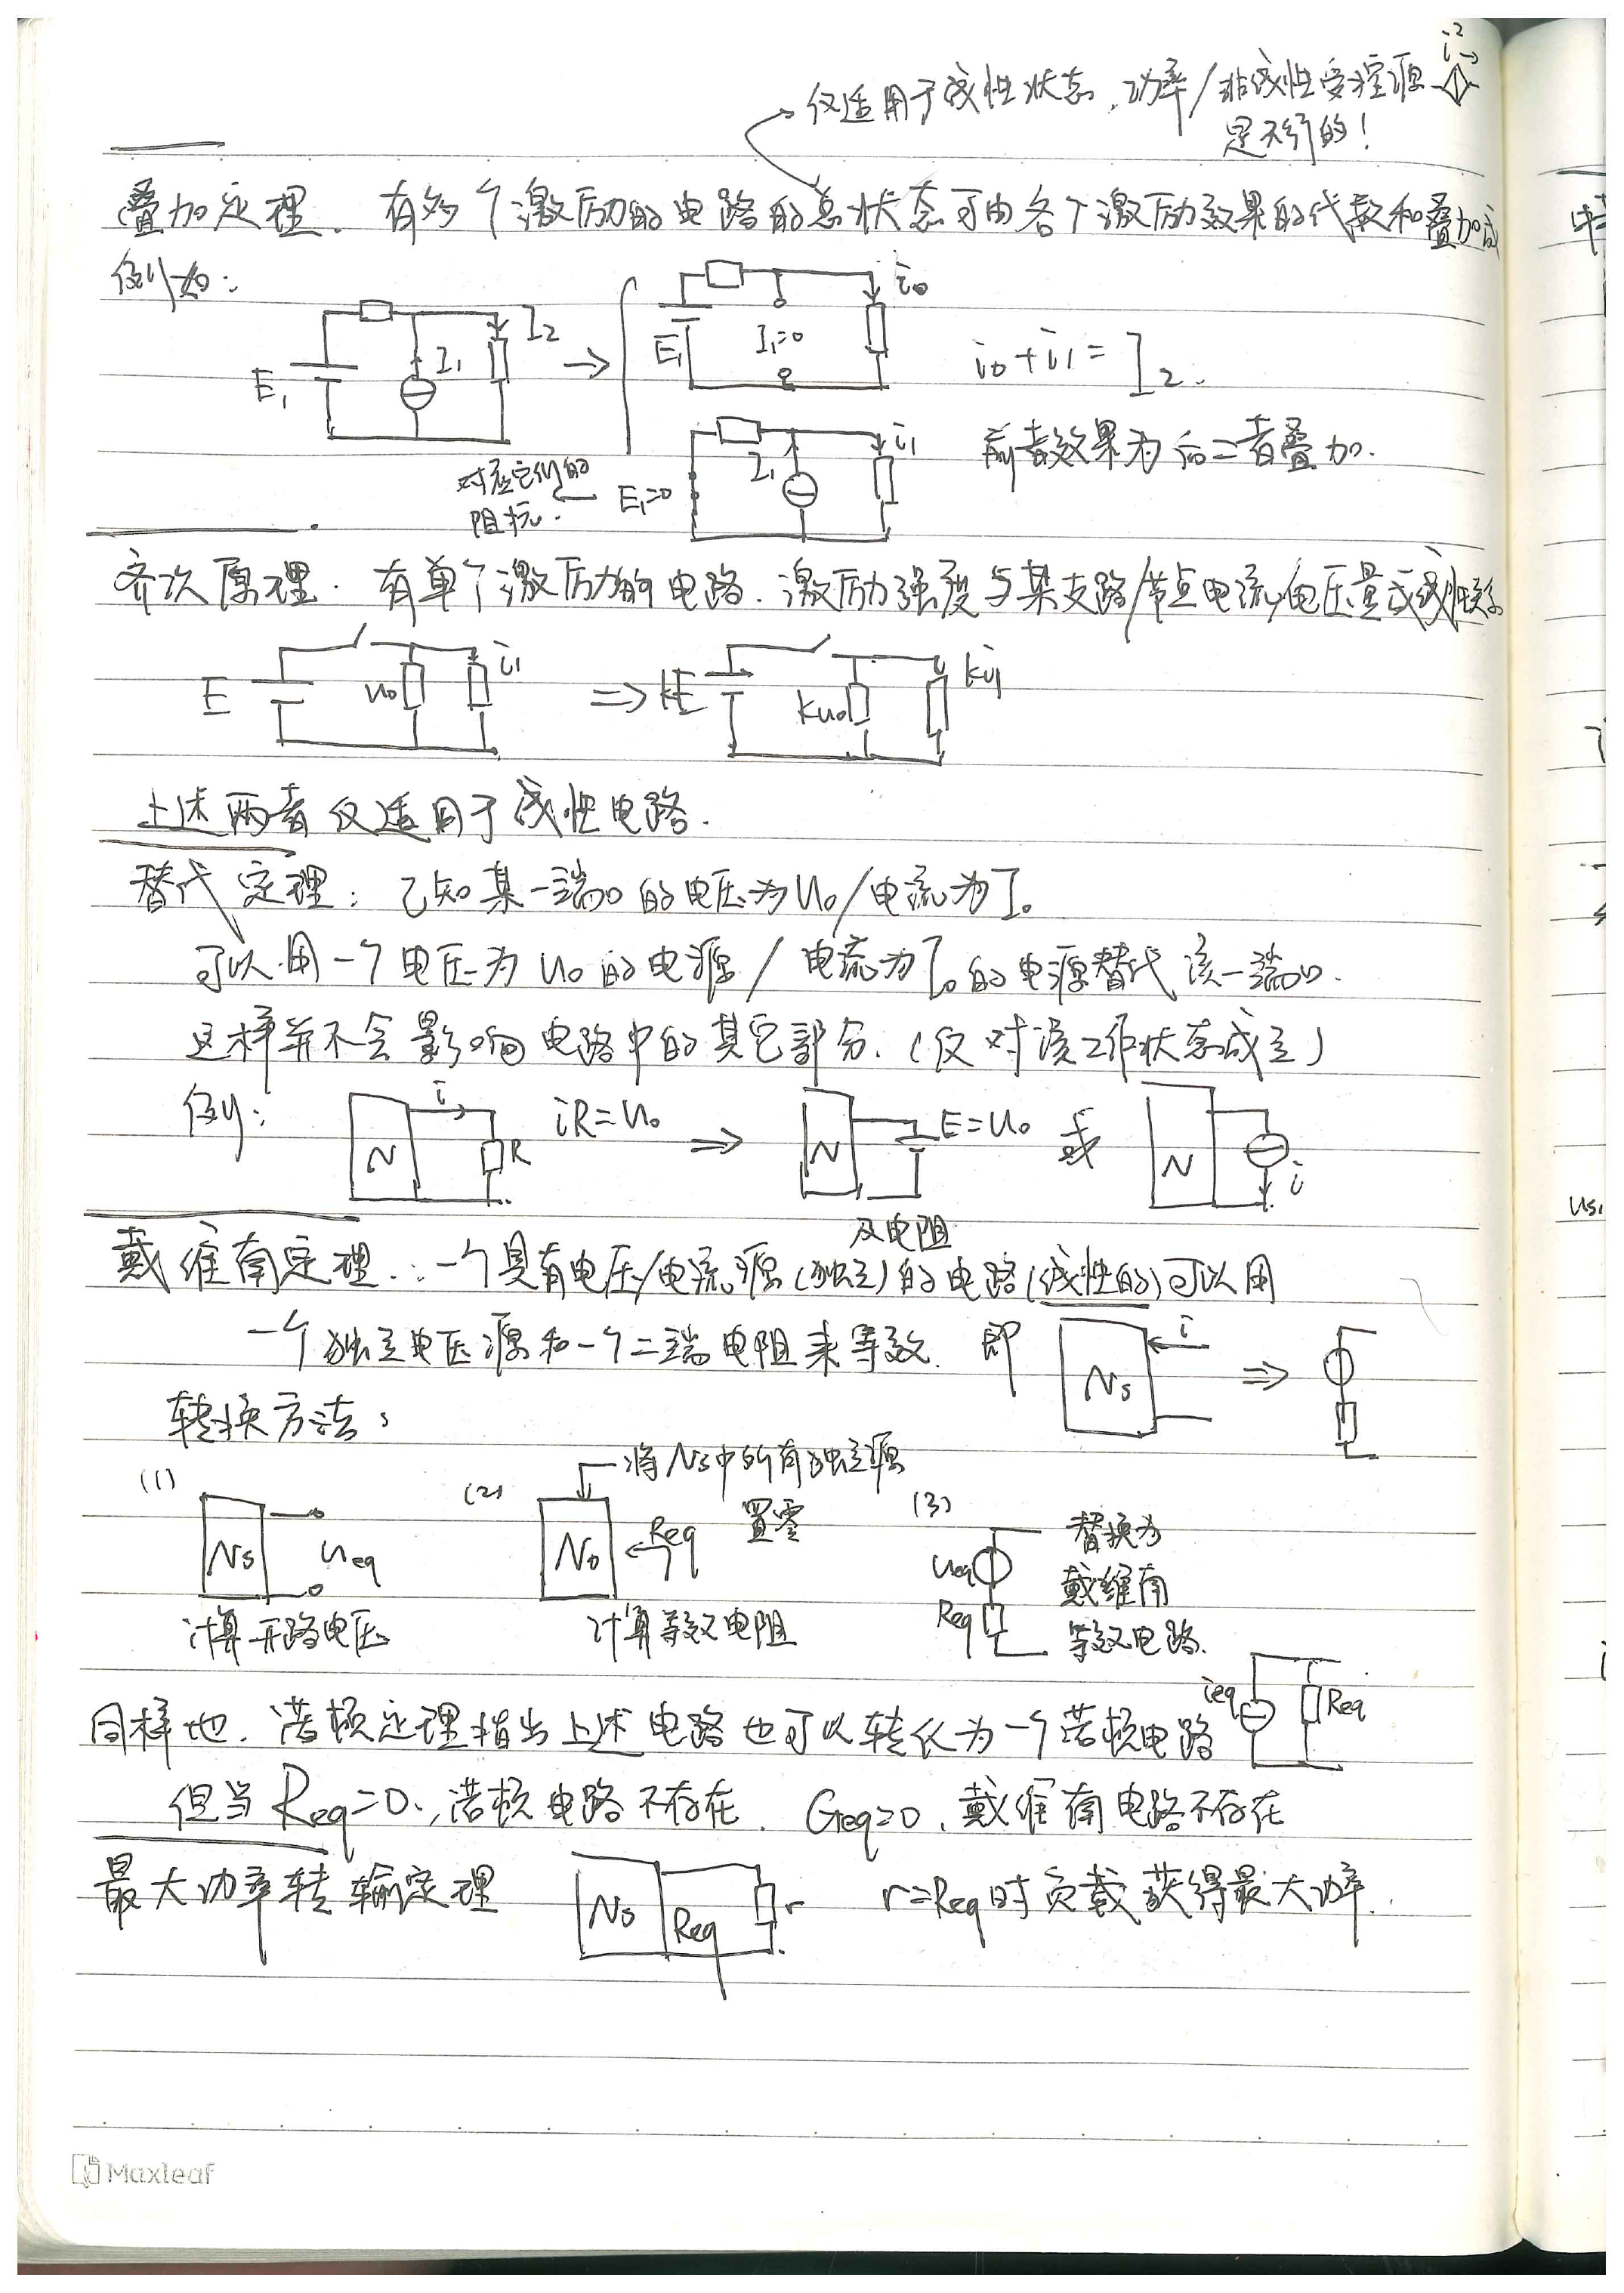 i²
仅适用于线性状态，功率/非线性受控源
是不行的！
叠加定理. 有多个激励的电路的总状态可由各个激励效果的代数和叠加成
例如：
E₁ I₁ I₂
E₁ I₁=0 i₀
i₀+i₁=I₂.
I₁ i₁
前者效果为后二者叠加.
对应它们的
阻抗.
E₁=0
齐次原理. 有单个激励的电路. 激励强度与某支路/节点电流/电压量成线性关系
E u₀ i₁ ⇒ kE ku₀ ki₁
上述两者仅适用于线性电路.
替代定理：已知某一端口的电压为U₀/电流为I₀
可以用一个电压为U₀的电源/电流为I₀的电源替代该一端口.
这样并不会影响电路中的其它部分.(仅对该工作状态成立)
例：
N i R iR=U₀ ⇒ N E=U₀ 或 N i
及电阻
戴维南定理.：一个具有电压/电流源(独立)的电路(线性的)可以用
一个独立电压源和一个二端电阻来等效. 即 Ns i ⇒
转换方法：
(1) Ns Ueq
计算开路电压
(2) 将Ns中所有独立源
置零
N₀ Req
计算等效电阻
(3) Ueq Req
替换为
戴维南
等效电路.
同样地. 诺顿定理指出上述电路也可以转化为一个诺顿电路 ieq Req
但当Req=0., 诺顿电路不存在. Geq=0, 戴维南电路不存在
最大功率转输定理 Ns Req r r=Req时负载获得最大功率.
Maxleaf
us₁